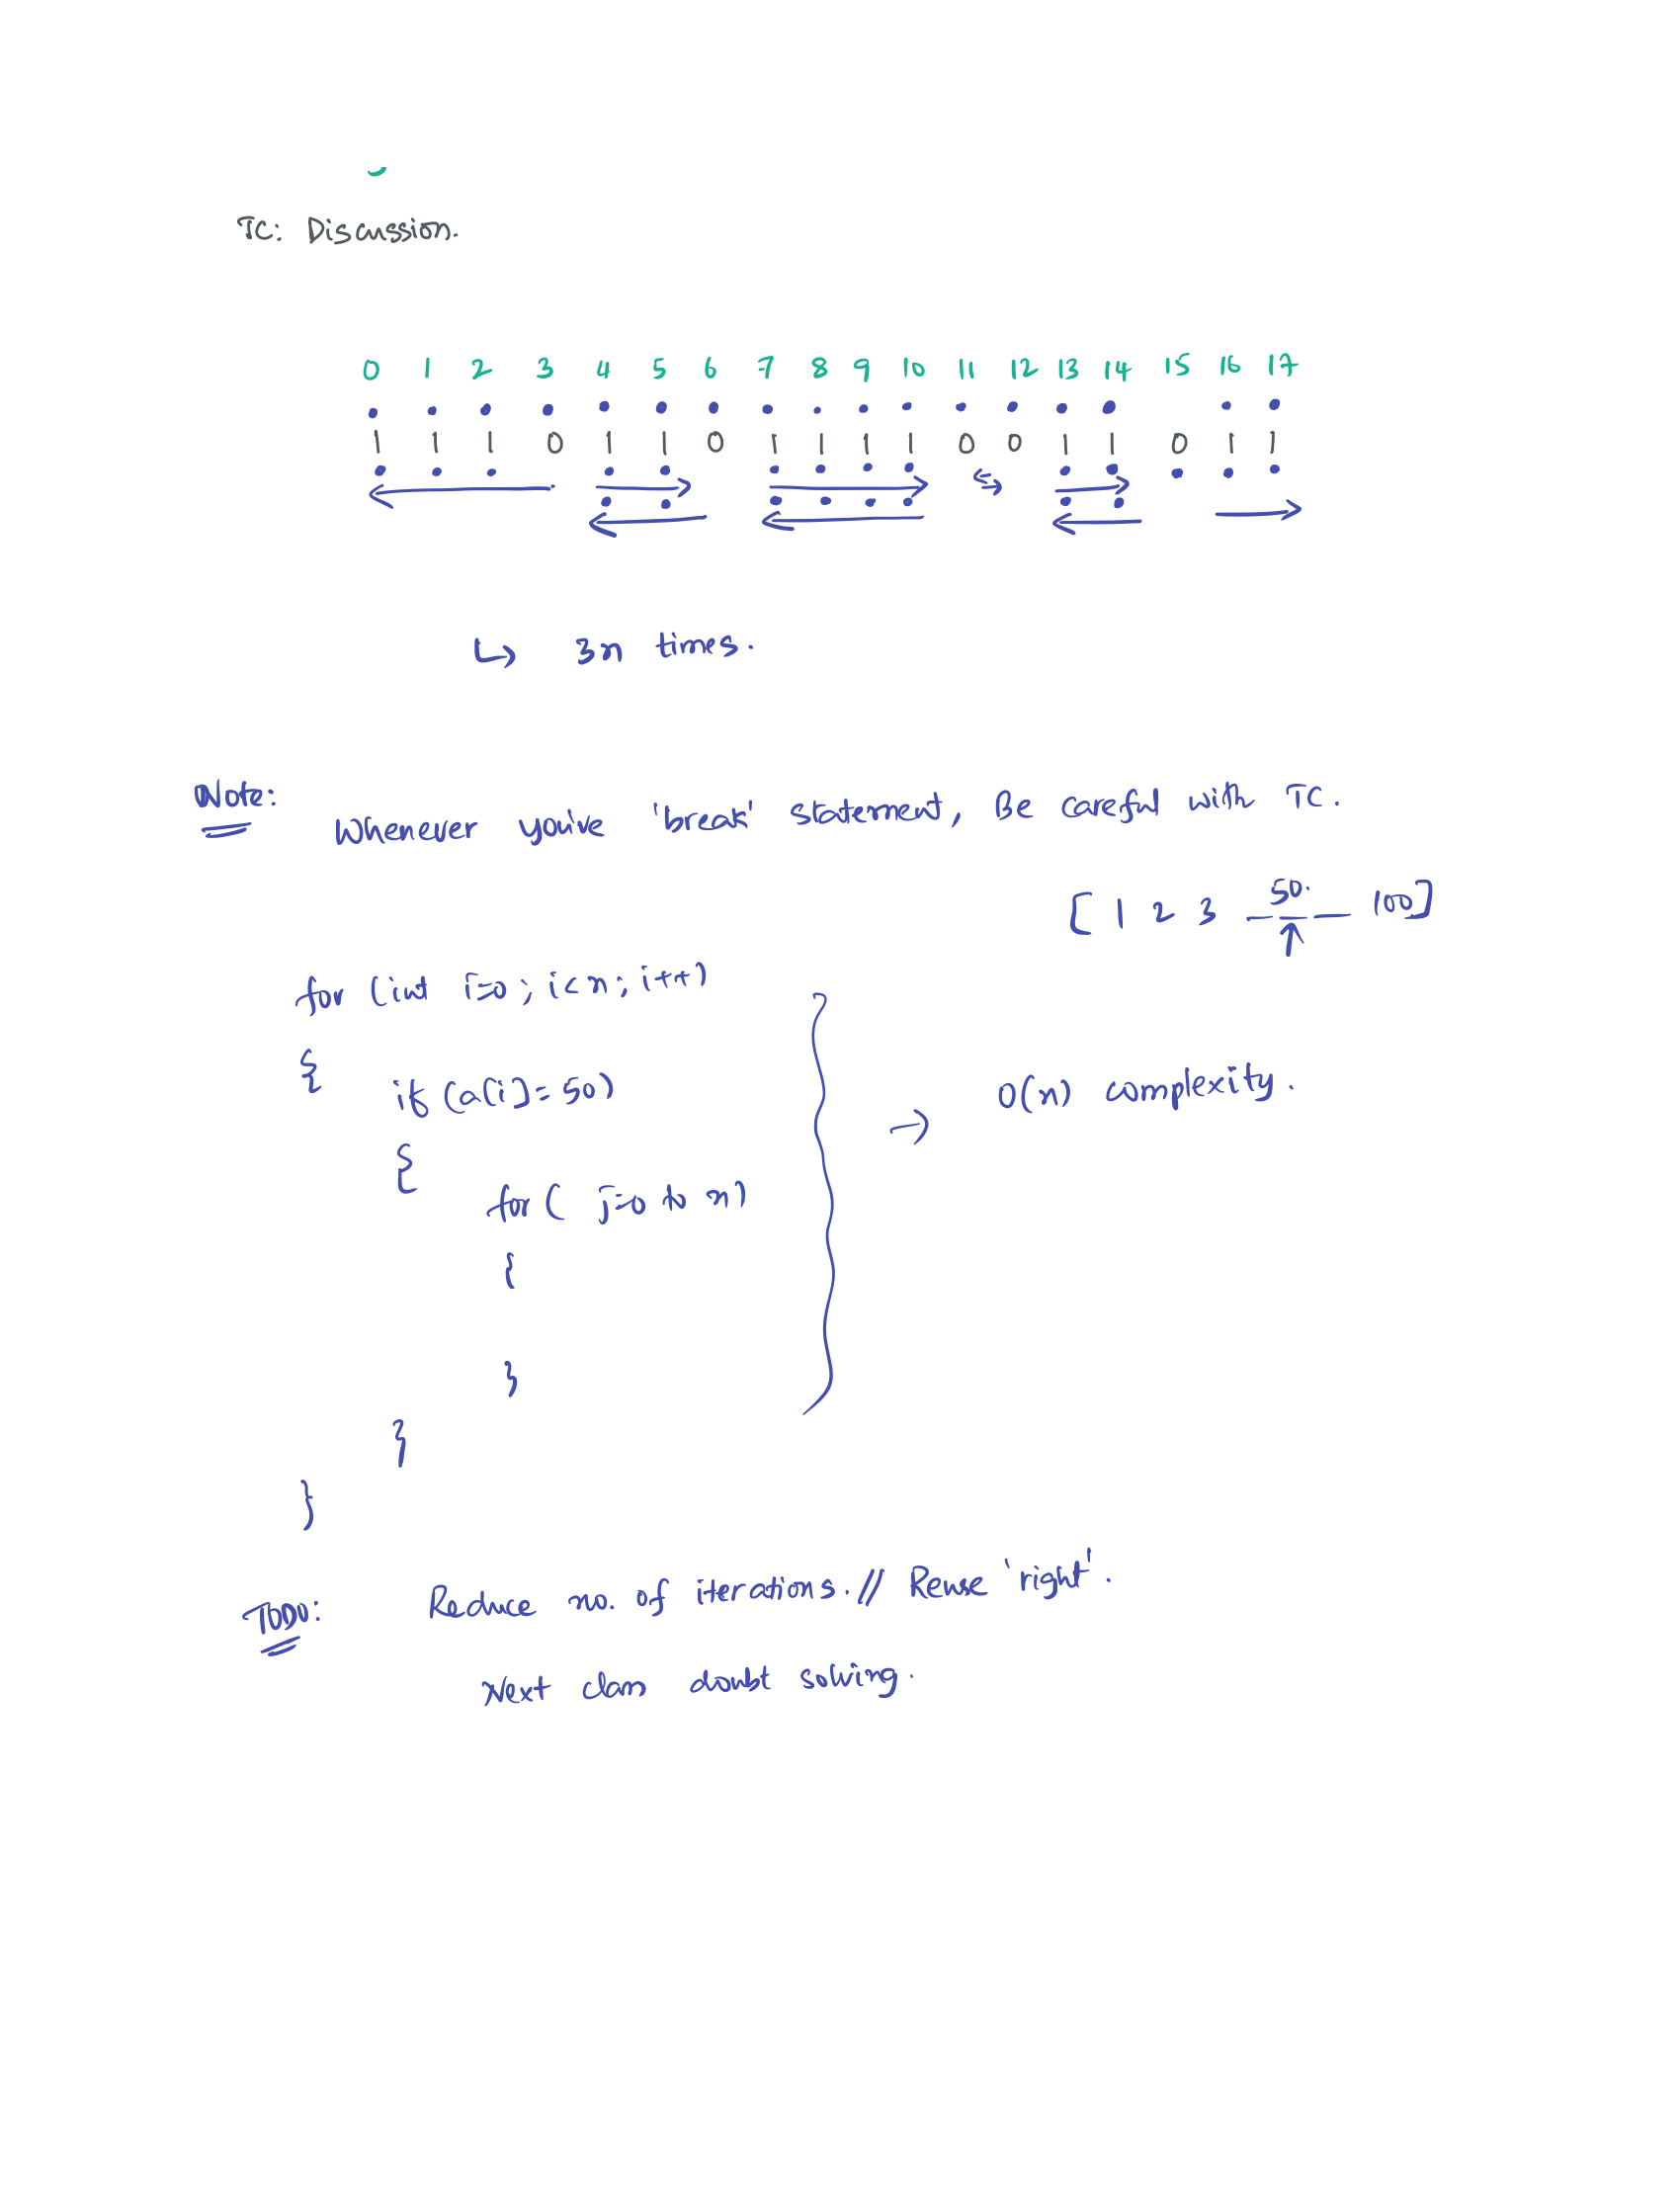 TC: Discussion.
0 1 2 3 4 5 6 7 8 9 10 11 12 13 14 15 16 17
1 1 1 0 1 1 0 1 1 1 1 0 0 1 1 0 1 1
↳ 3n times.
Note: Whenever you've 'break' statement, Be careful with TC.
[ 1 2 3 — 50. — 100]
for (int i=0; i<n; i++)
{
if (a[i]= 50)
{
for ( j=0 to n)
{
}
}
}
→ O(n) complexity.
TODO: Reduce no. of iterations. // Reuse 'right'.
Next class doubt solving.